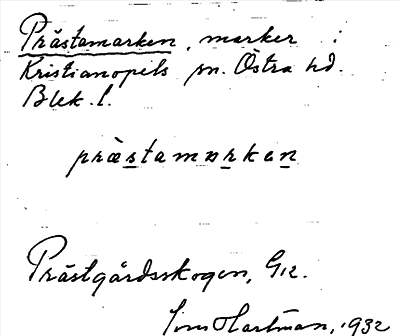 Prästamarken, marker i
Kristianopels sn. Östra hd.
Blek. l.
präs̲tamar̲ken̲
Prästgårdsskogen, G12.
Hartman, 1932